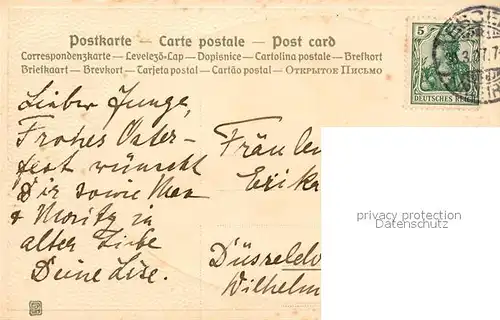 Postkarte — Carte postale — Post card
Correspondenzkarte — Levelező-Lap — Dopisnice — Cartolina postale — Brefkort
Briefkaart — Brevkort — Tarjeta postal — Cartão postal — Открытое Письмо
5
DEUTSCHES REICH
Lieber Junge,
Frohes Oster-
fest wünscht
Dir sowie Max
& Moritz in
alter Liebe
Deine Lise.
Fräulen
Erika
Düsseldo
Wilhelm
privacy protection
Datenschutz